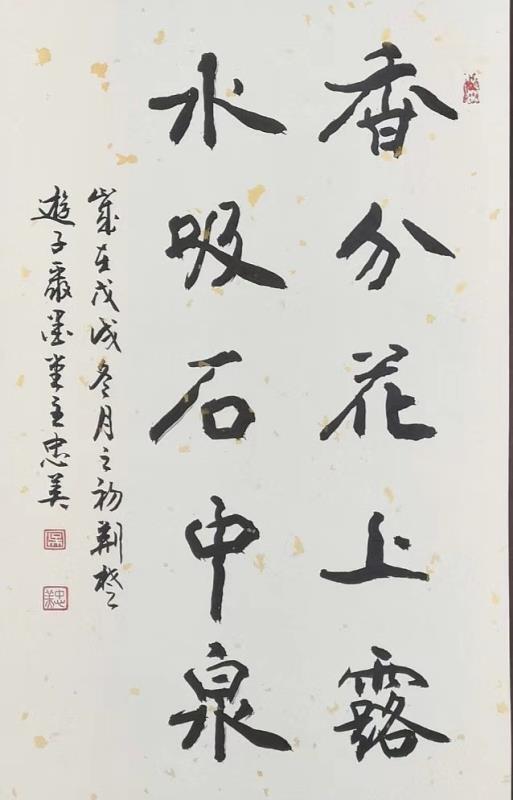 香分花上露
水吸石中泉
岁在戊戌冬月之初荆楚
游子聚墨堂主忠美